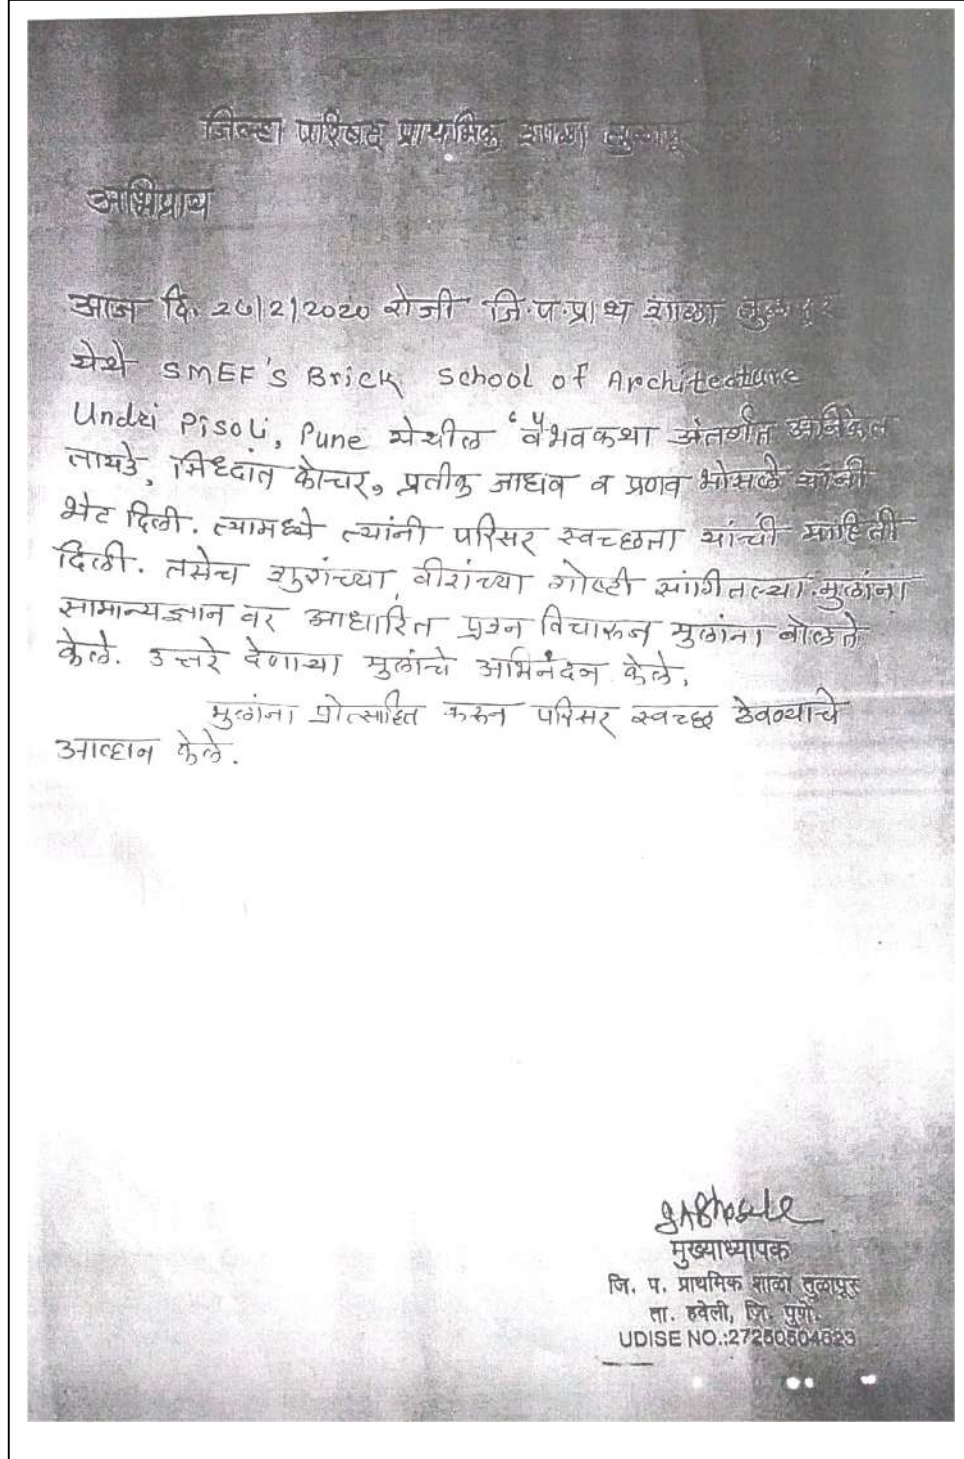 जिल्हा परिषद प्राथमिक शाळा तुळापूर
अभिप्राय
आज दि. 26/2/2020 रोजी जि.प.प्राथ शाळा तुळापूर
येथे SMEF'S Brick School of Architecture
Undri Pisoli, Pune येथील "वैभवकथा अंतर्गत अनिकेत
तायडे, सिध्दांत कोचर, प्रतीक जाधव व प्रणव भोसले यांनी
भेट दिली. त्यामध्ये त्यांनी परिसर स्वच्छता यांची माहिती
दिली. तसेच शुरांच्या, वीरांच्या गोष्टी सांगितल्या. मुलांना
सामान्यज्ञान वर आधारित प्रश्न विचारून मुलांना बोलते
केले. उत्तरे देणाऱ्या मुलांचे अभिनंदन केले.
मुलांना प्रोत्साहित करून परिसर स्वच्छ ठेवण्याचे
आव्हान केले.
मुख्याध्यापक
जि. प. प्राथमिक शाळा तुळापूर
ता. हवेली, जि. पुणे.
UDISE NO.:27250504623